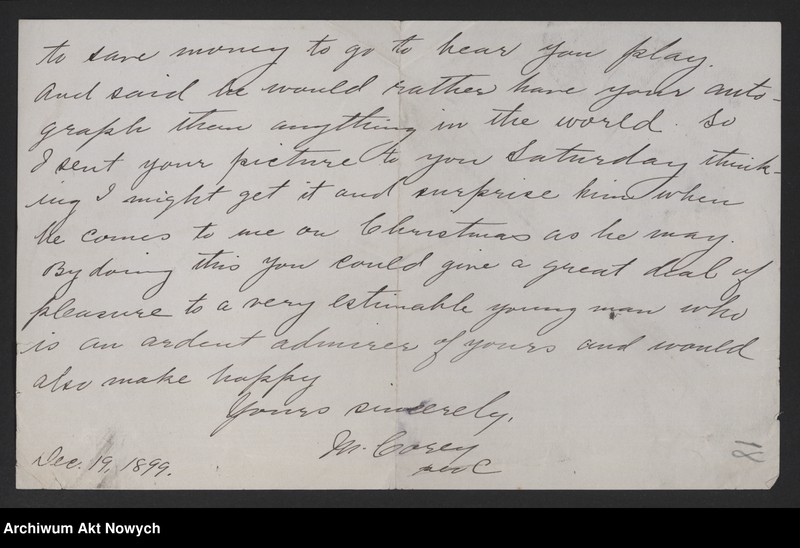 to save money to go to hear you play.
And said he would rather have your auto-
graph than anything in the world. So
I sent your picture to you Saturday think-
ing I might get it and surprise him when
he comes to me on Christmas as he may.
By doing this you could give a great deal of
pleasure to a very estimable young man who
is an ardent admirer of yours and would
also make happy
Yours sincerely,
M. Corey
Dec. 19, 1899.
18
Archiwum Akt Nowych